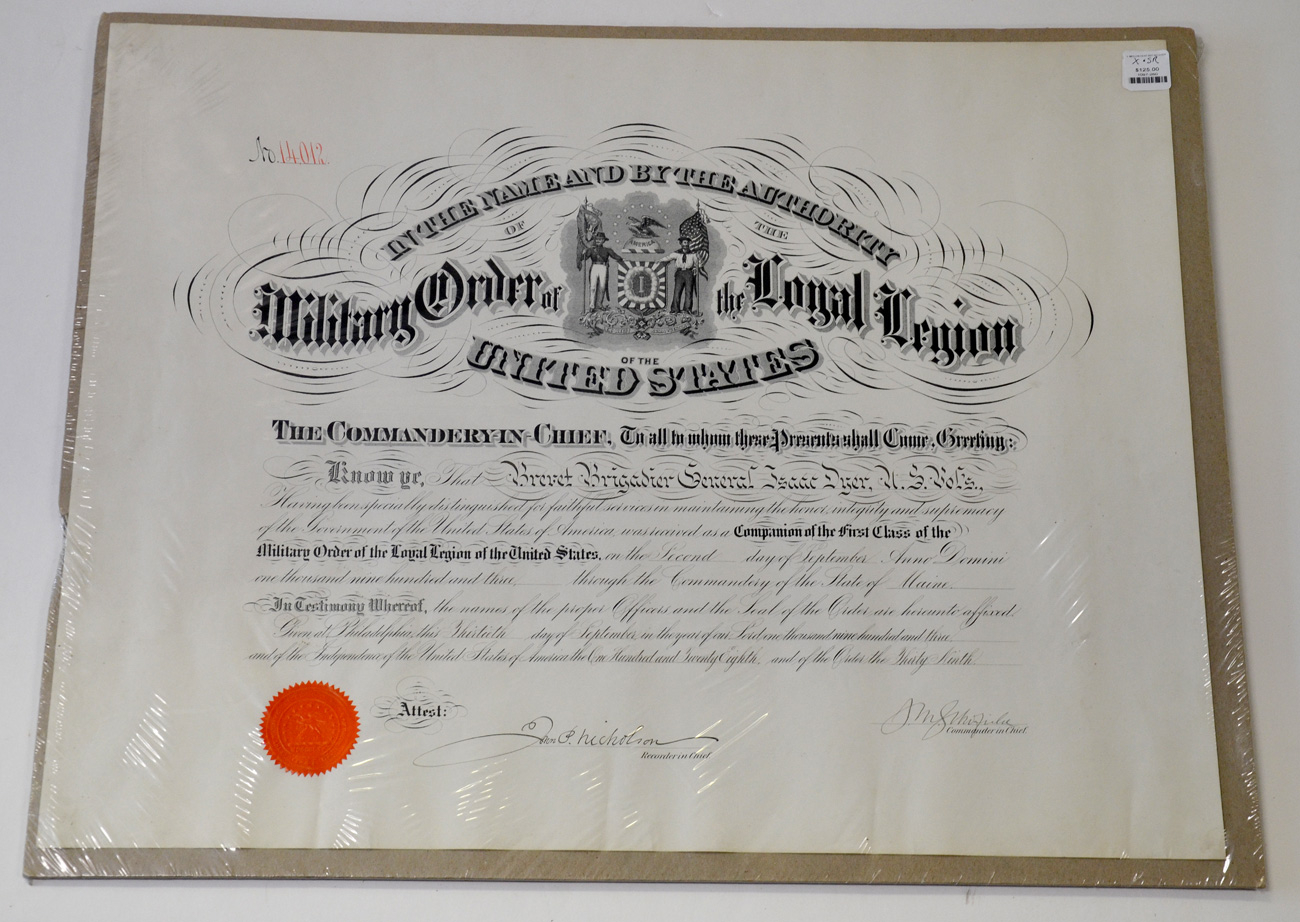 X + SR
$125.00
No. 14,012.
IN THE NAME AND BY THE AUTHORITY
OF THE
AMERICA
Military Order of the Loyal Legion
OF THE
UNITED STATES
THE COMMANDERY-IN-CHIEF, To all to whom these Presents shall Come, Greeting:
Know ye, That Brevet Brigadier General Isaac Dyer, U. S. Vols.,
Having been specially distinguished for faithful services in maintaining the honor, integrity and supremacy
of the Government of the United States of America, was received as a Companion of the First Class of the
Military Order of the Loyal Legion of the United States, on the Second day of September Anno Domini
one thousand nine hundred and three through the Commandery of the State of Maine.
In Testimony Whereof, the names of the proper Officers and the Seal of the Order are hereunto affixed.
Given at Philadelphia, this Thirtieth day of September, in the year of our Lord one thousand nine hundred and three
and of the Independence of the United States of America the One Hundred and Twenty Eighth, and of the Order the Thirty Ninth
Attest:
John P. Nicholson
Recorder in Chief
Commander in Chief